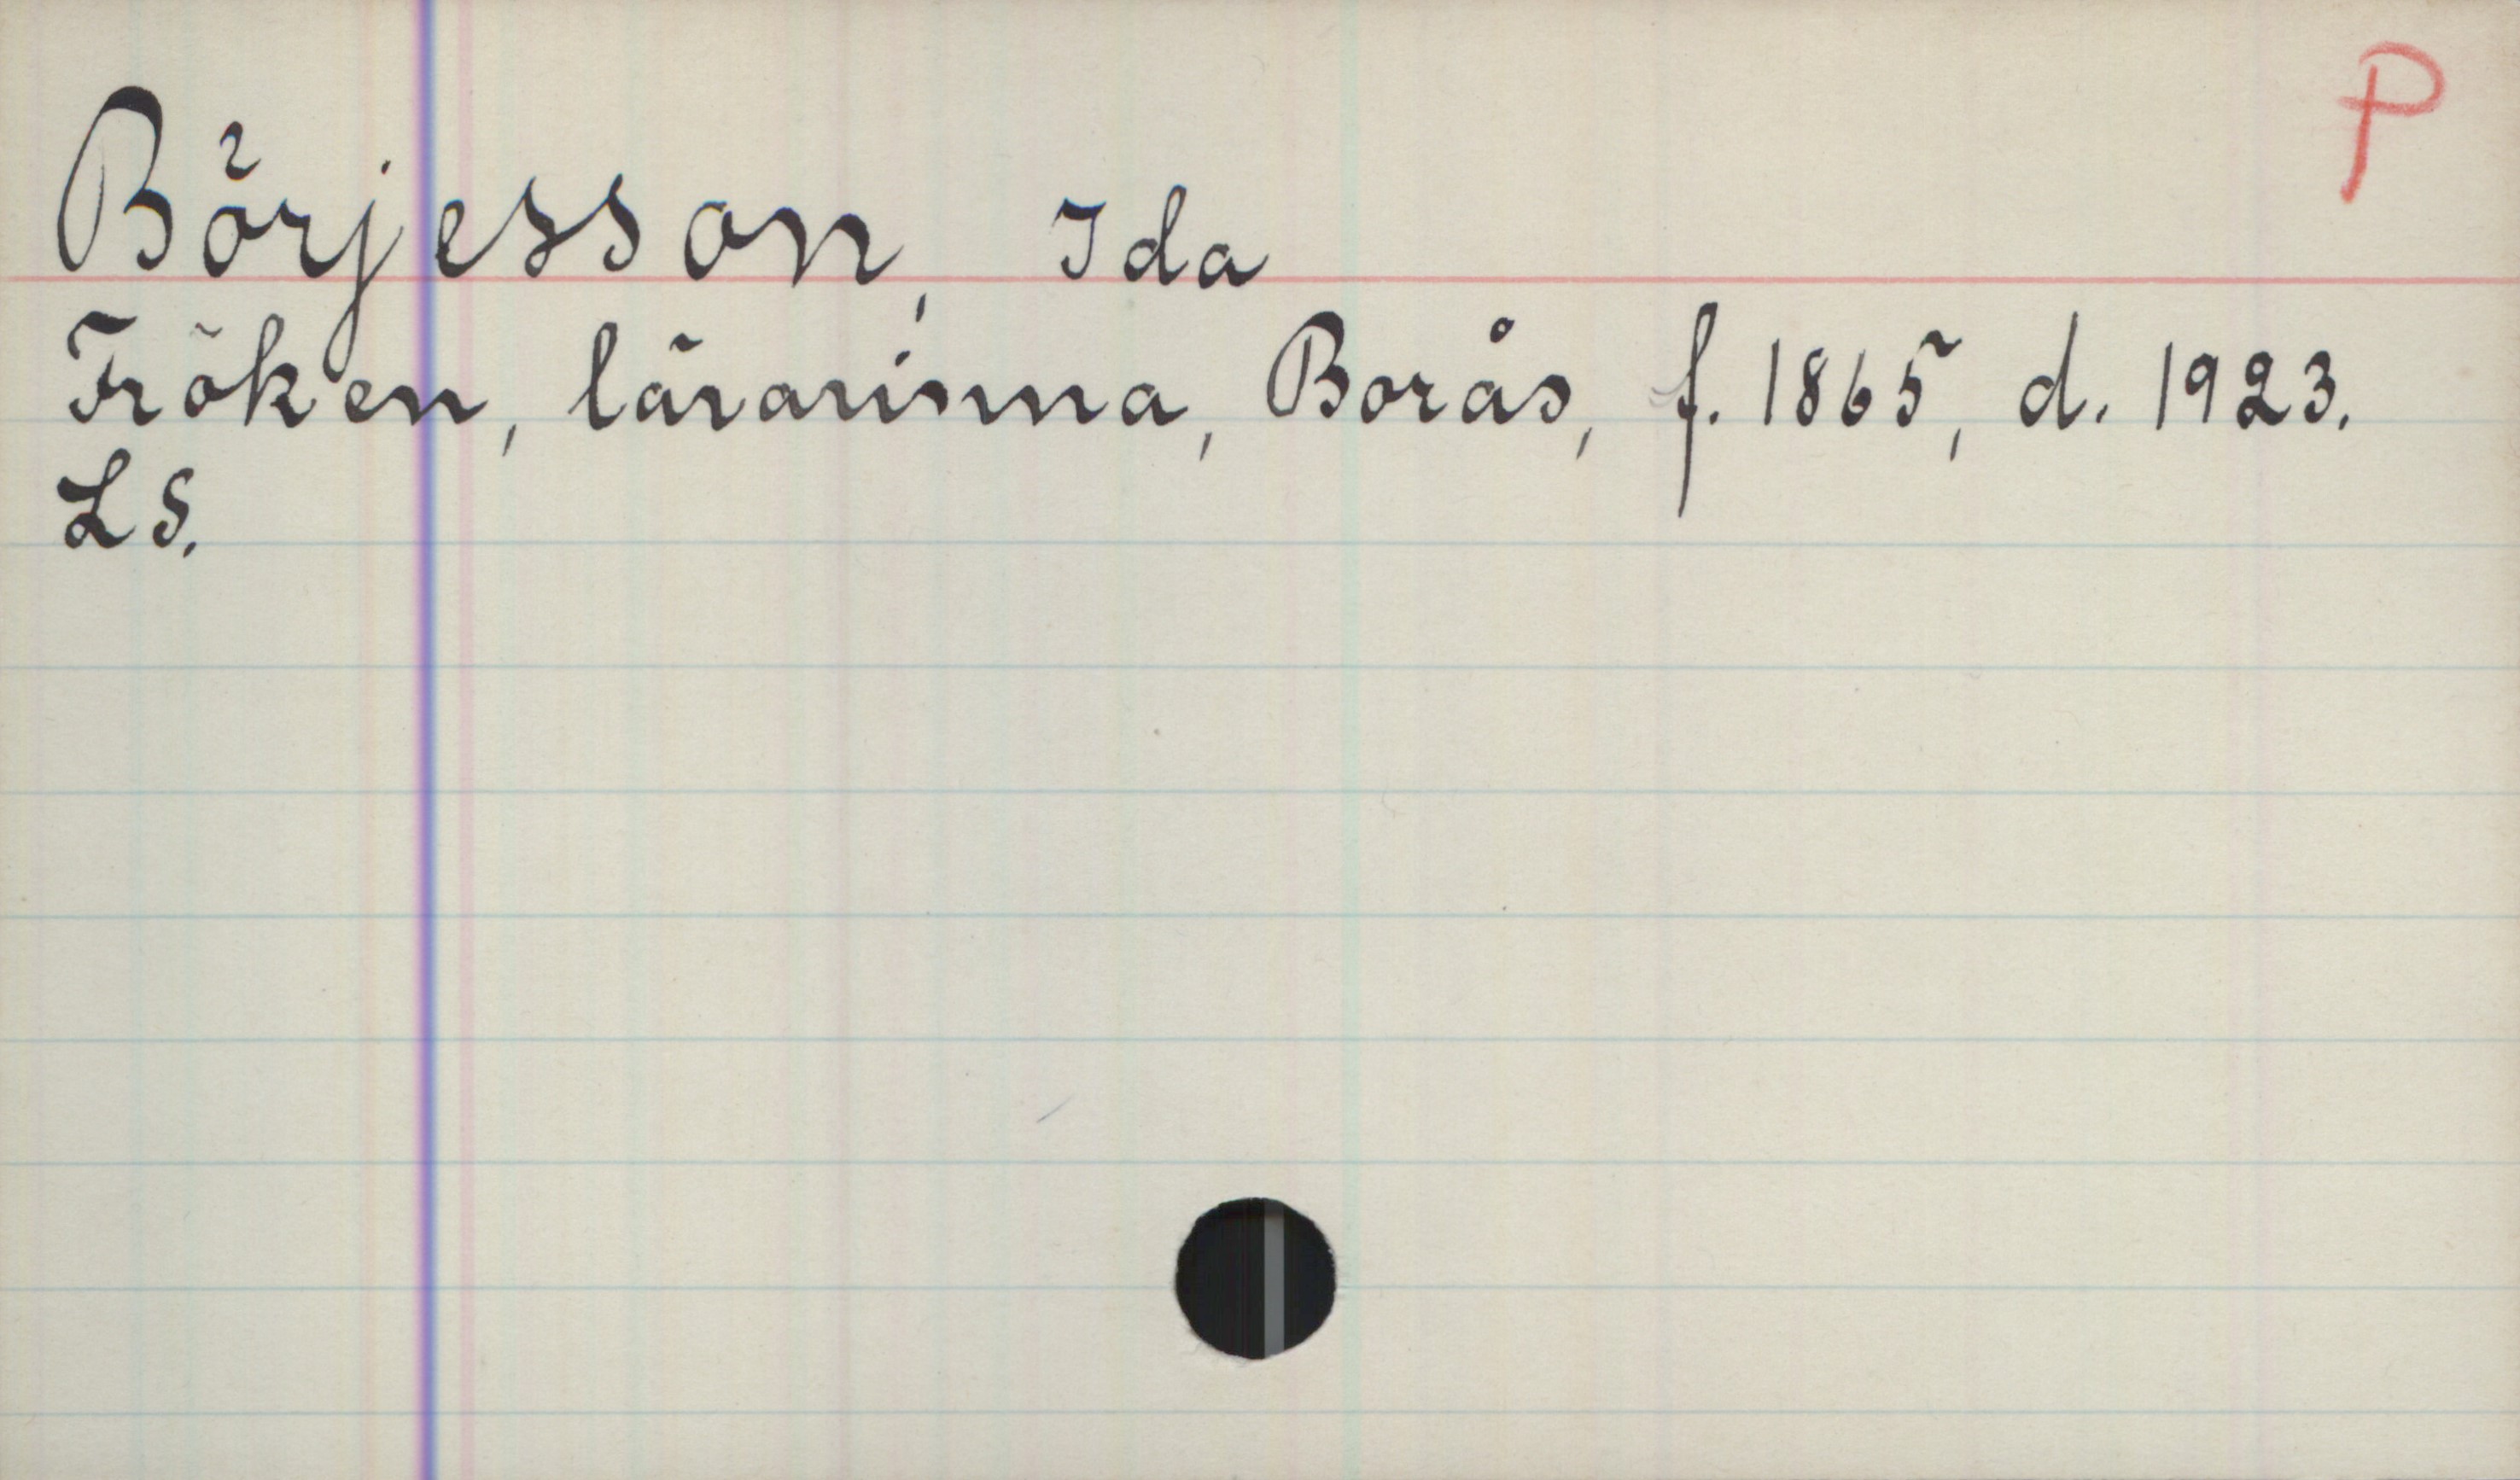 P
Börjesson, Ida
Fröken, lärarinna, Borås, f. 1865, d. 1923.
LS.